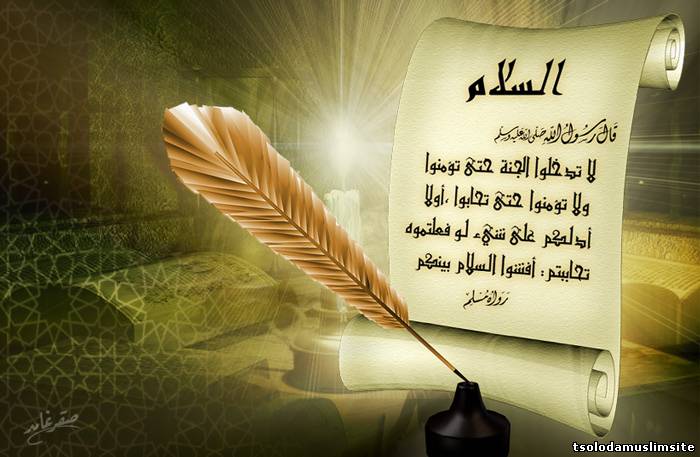 السلام
قال رسول الله صلى الله عليه وسلم
لا تدخلوا الجنة حتى تؤمنوا
ولا تؤمنوا حتى تحابوا ،أولا
أدلكم على شيء لو فعلتموه
تحاببتم: أفشوا السلام بينكم
رواه مسلم
صقر غامد
tsolodamuslimsite